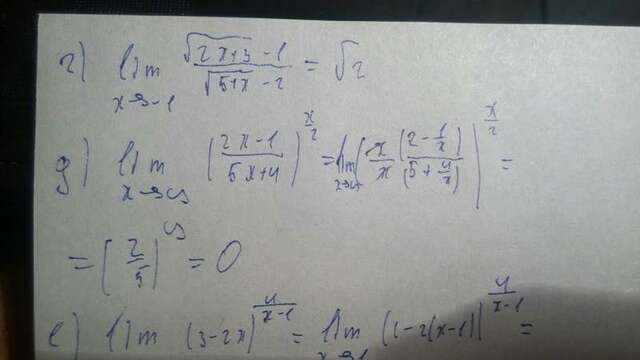 г) lim x→-1 (√(2x+3) -1)/(√(5+x) -2) = √2
д) lim x→∞ ((2x-1)/(5x+4))^(x/2) = lim x→∞ (x/x (2-1/x)/(5+4/x))^(x/2) =
= (2/5)^∞ = 0
е) lim (3-2x)^(4/(x-1)) = lim x→1 (1-2(x-1))^(4/(x-1)) =